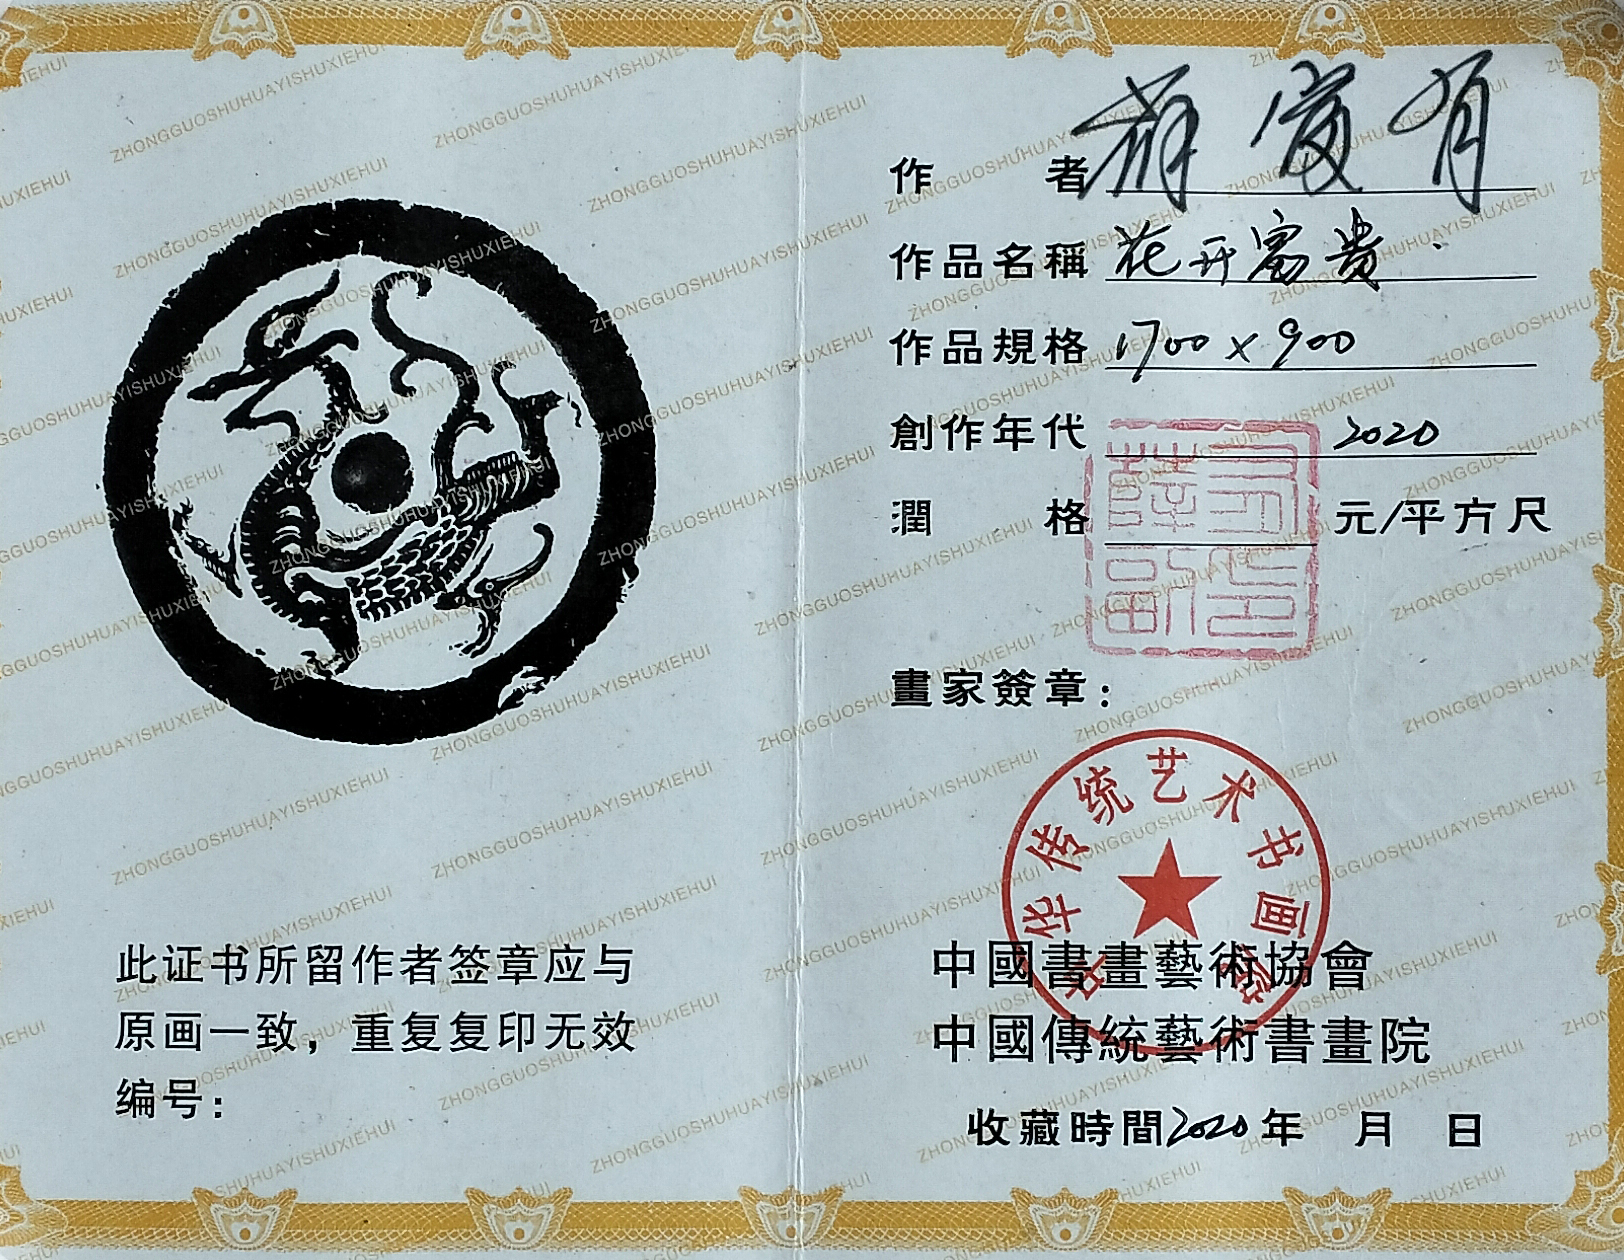 此证书所留作者签章应与
原画一致，重复复印无效
编号：
作者
作品名稱 花开富贵
作品規格 1700×900
創作年代 2020
潤格 元/平方尺
畫家簽章：
中华传统艺术书画院
中國書畫藝術協會
中國傳統藝術書畫院
收藏時間2020年 月 日
ZHONGGUOSHUHUAYISHUXIEHUI